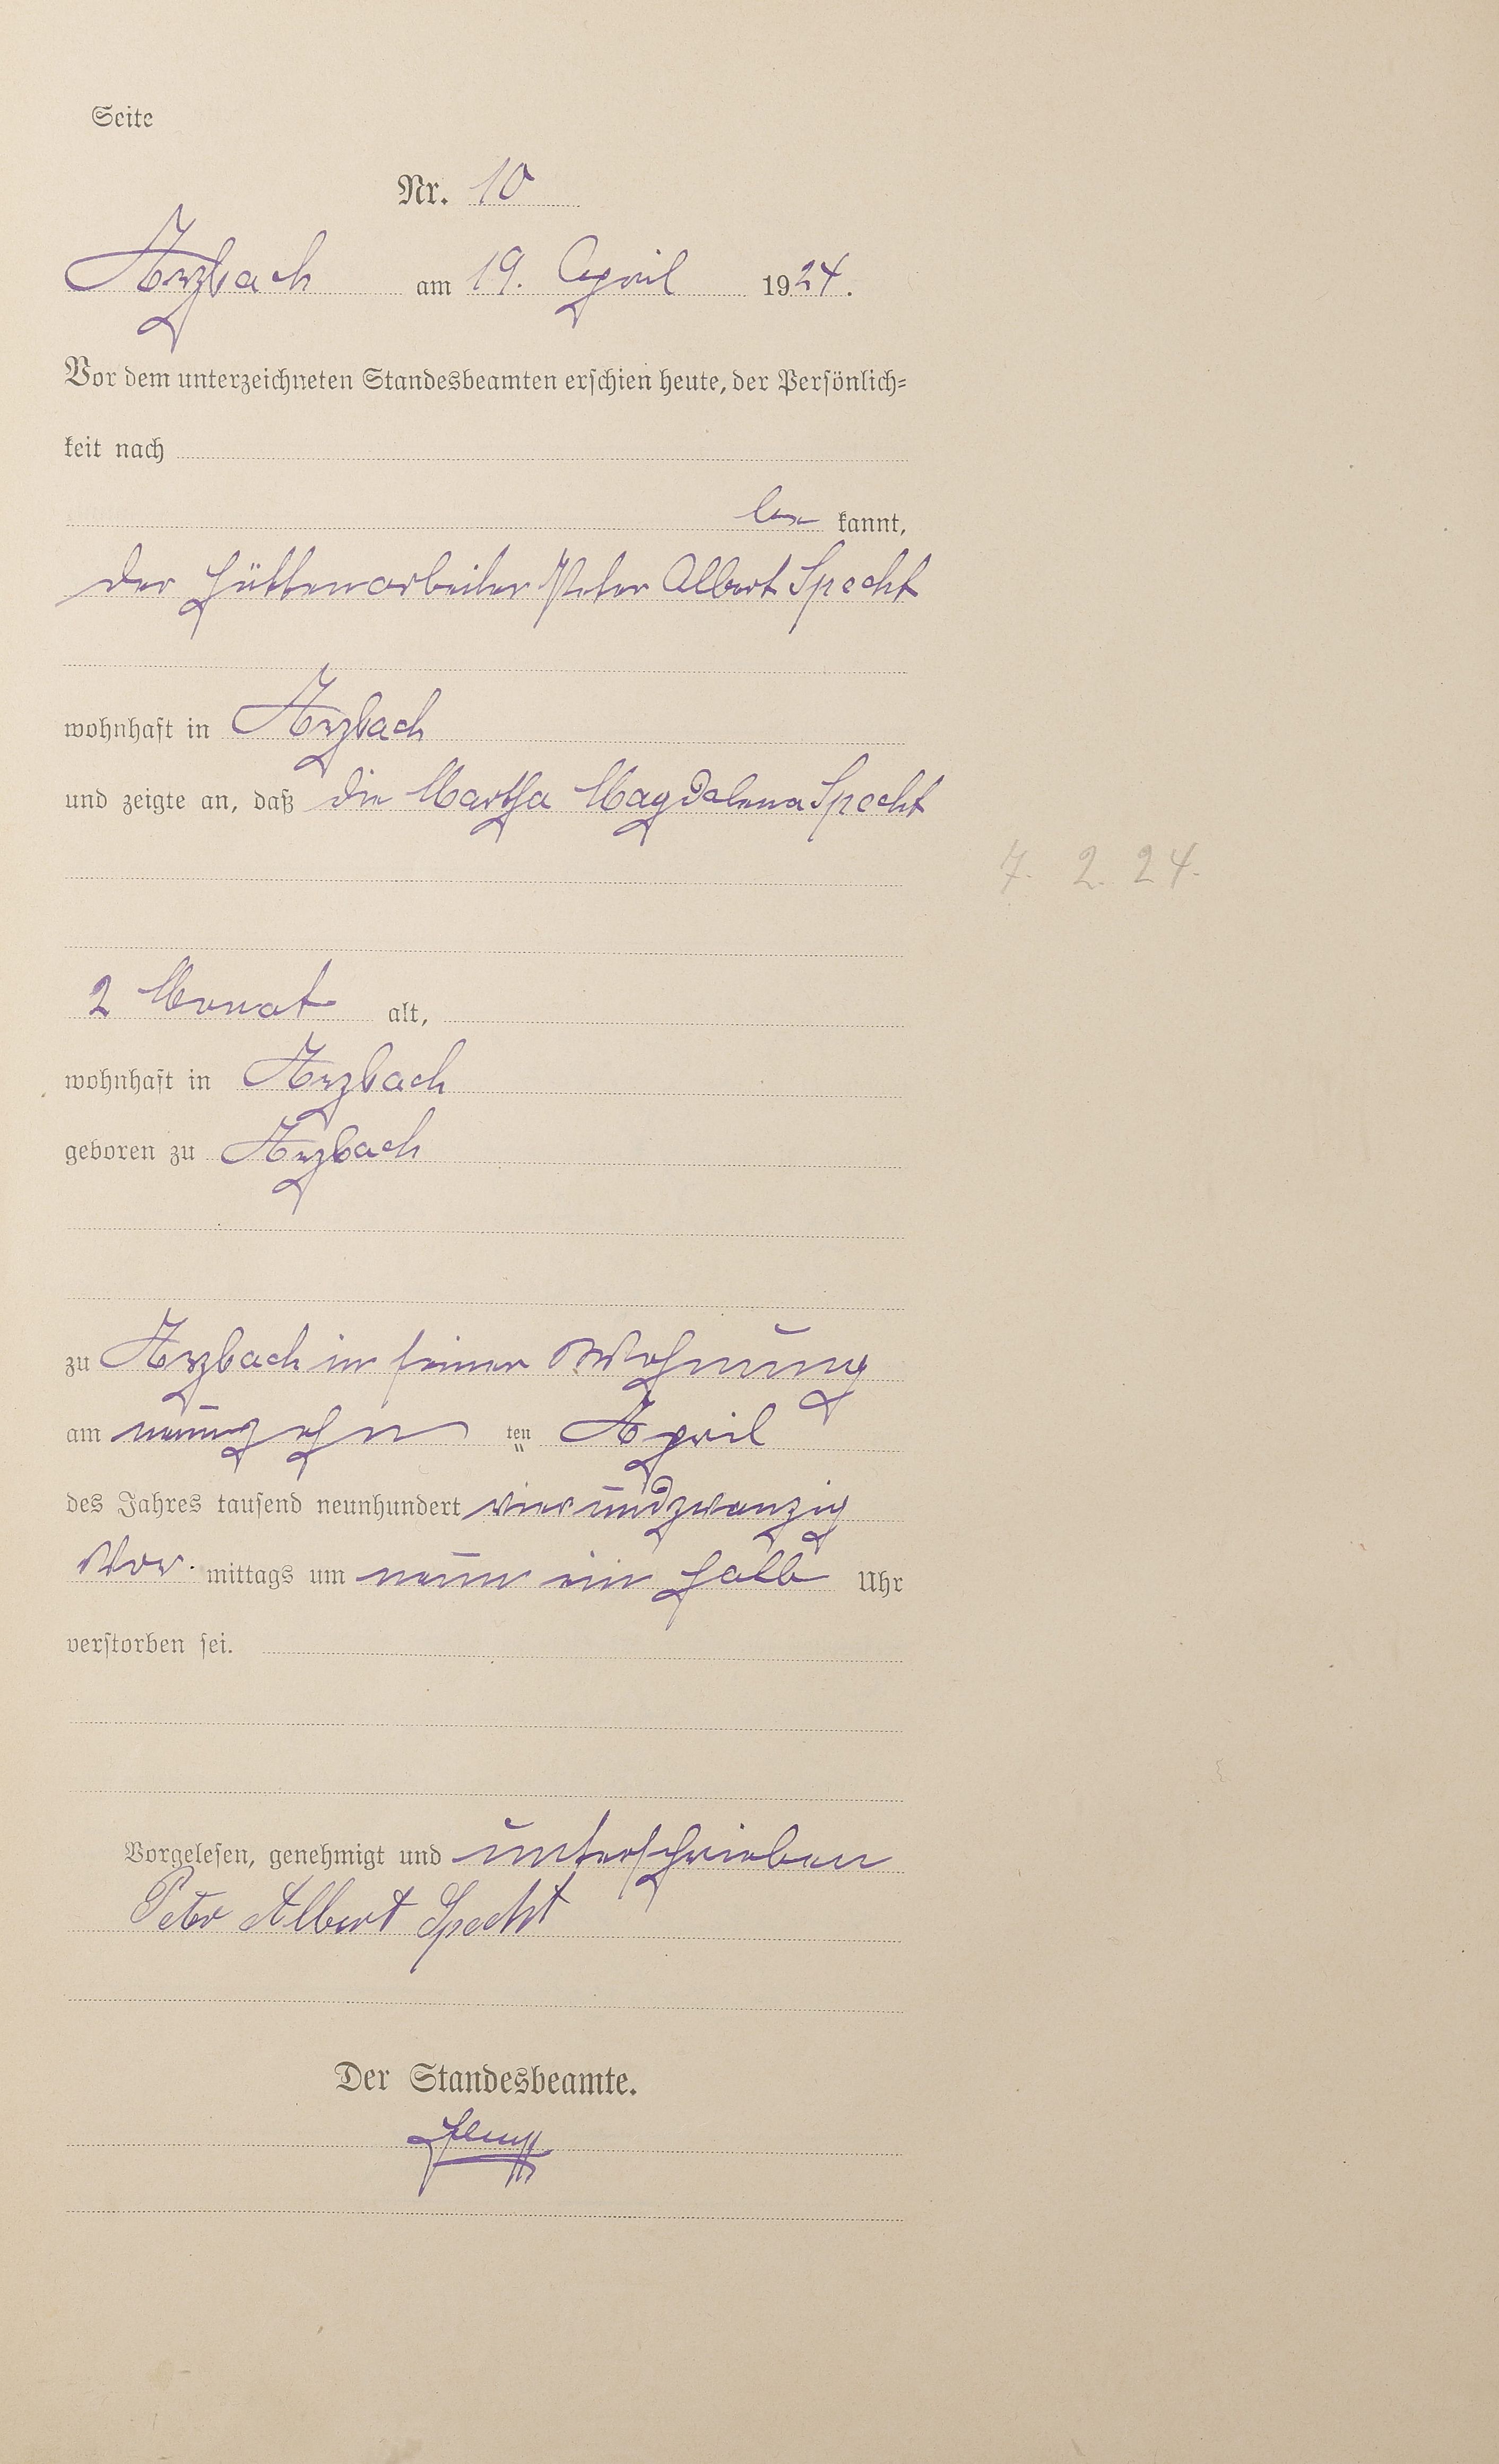 Seite
Nr. 10
Arzbach am 19. April 1924.
Vor dem unterzeichneten Standesbeamten erschien heute, der Persönlich=
keit nach
be kannt,
der Hüttenarbeiter Peter Albert Specht
wohnhaft in Arzbach
und zeigte an, daß die Martha Magdalena Specht
7. 2. 24.
2 Monat alt,
wohnhaft in Arzbach
geboren zu Arzbach
zu Arzbach in seiner Wohnung
am neunzehn ten April
des Jahres tausend neunhundert vierundzwanzig
Vor mittags um neun ein halb Uhr
verstorben sei.
Vorgelesen, genehmigt und unterschrieben
Peter Albert Specht
Der Standesbeamte.